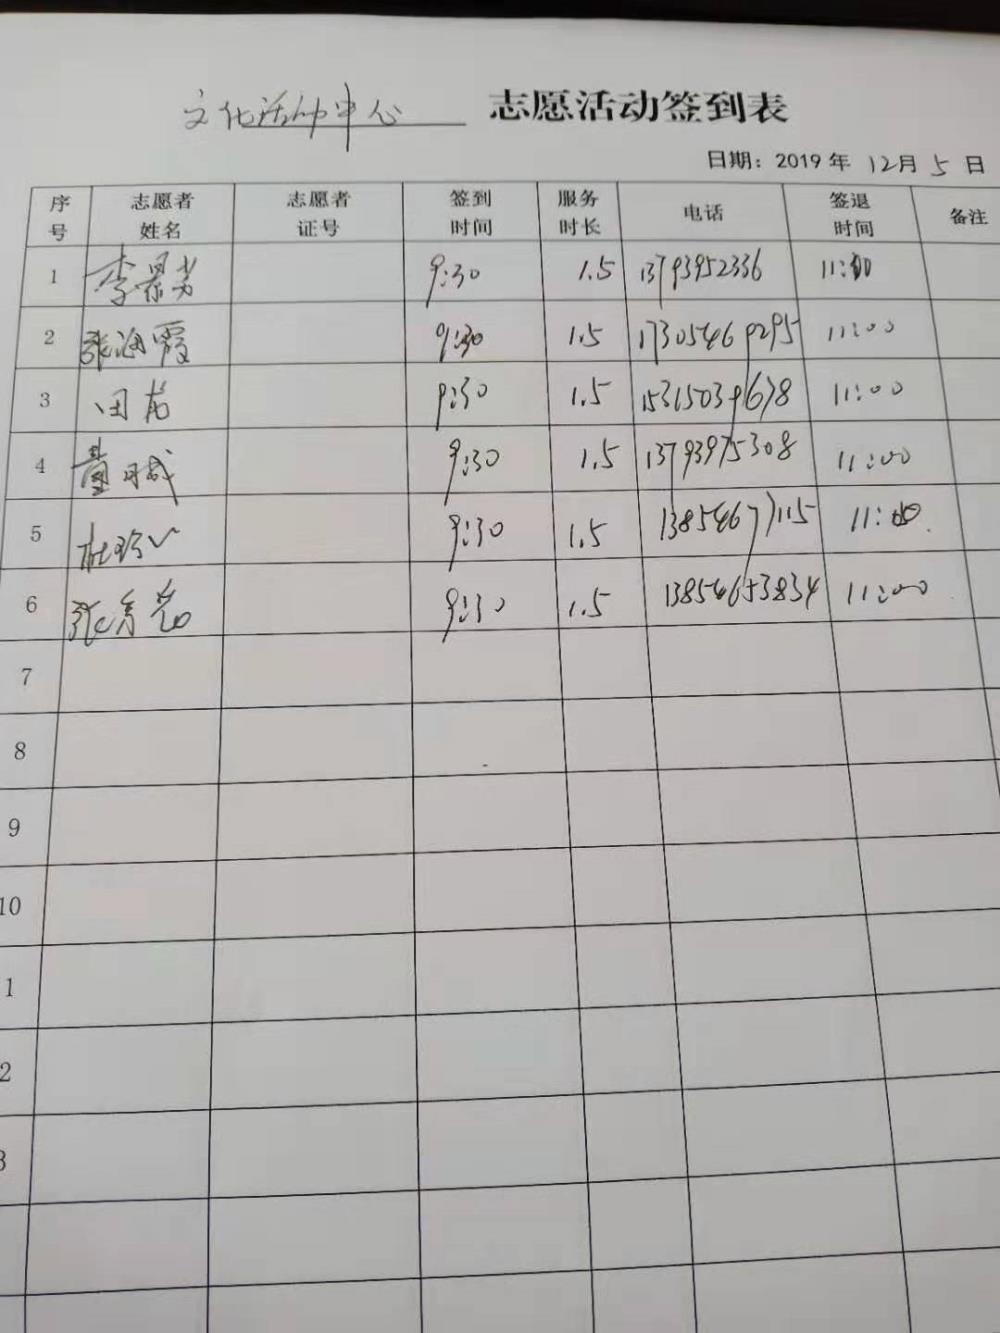 文化活动中心 志愿活动签到表
日期：2019年 12月 5日
序号 志愿者姓名 志愿者证号 签到时间 服务时长 电话 签退时间 备注
1 李景芳 9:30 1.5 13793952336 11:00
2 张海霞 9:30 1.5 17305469295 11:00
3 田 9:30 1.5 15315039678 11:00
4 董 9:30 1.5 13793975308 11:00
5 杜 9:30 1.5 13854677115 11:00
6 张 9:30 1.5 13854653834 11:00
7
8
9
10
1
2
3